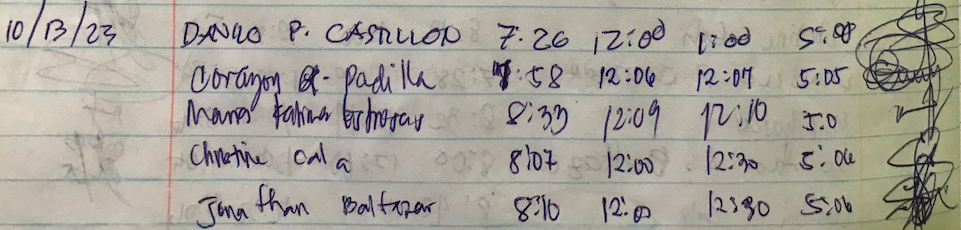 10/13/23 DANILO P. CASTILLON 7:26 12:00 1:00 5:08
Corazon R. Padilla 7:58 12:06 12:07 5:05
Maria Fatima 8:33 12:09 12:10 5:0
Christine Cala 8:07 12:00 12:30 5:06
Jonathan Baltazar 8:10 12:00 12:30 5:06